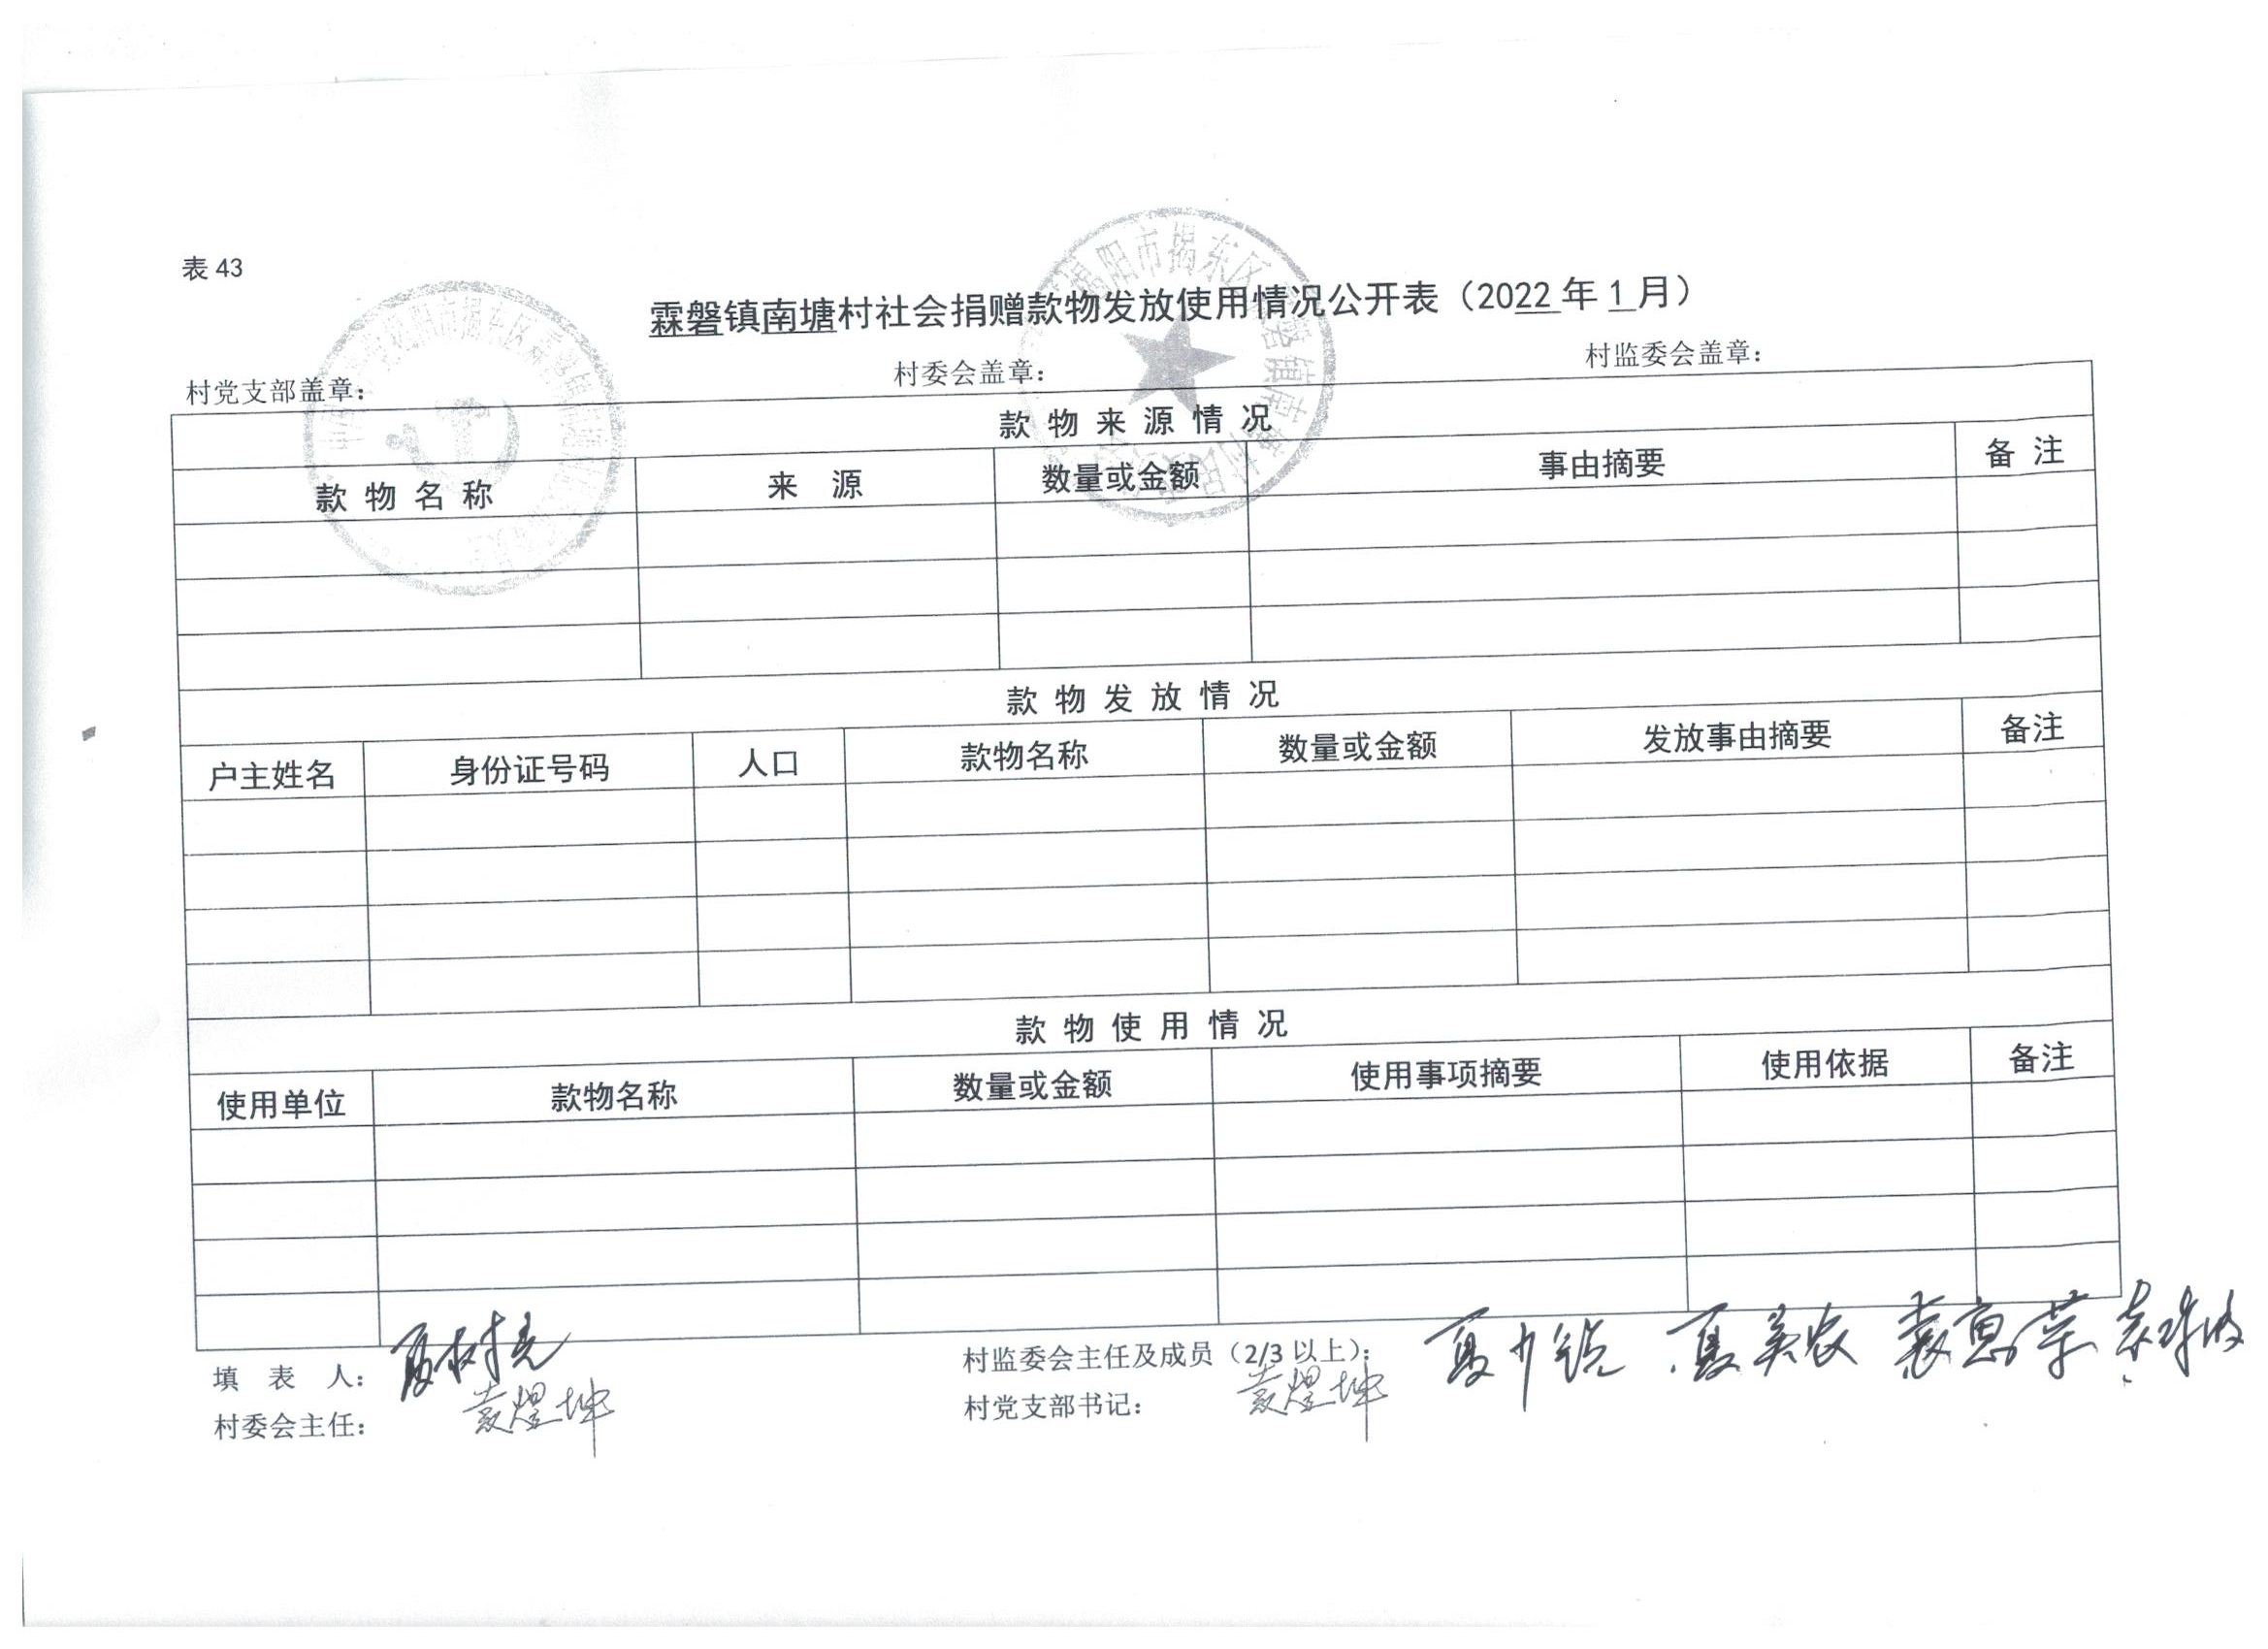 表 43
霖磐镇南塘村社会捐赠款物发放使用情况公开表（2022 年 1 月）
村党支部盖章： 村委会盖章： 村监委会盖章：
款 物 来 源 情 况
款 物 名 称 来 源 数量或金额 事由摘要 备 注
款 物 发 放 情 况
户主姓名 身份证号码 人口 款物名称 数量或金额 发放事由摘要 备注
款 物 使 用 情 况
使用单位 款物名称 数量或金额 使用事项摘要 使用依据 备注
填 表 人： 村监委会主任及成员（2/3 以上）：
村委会主任： 袁煌坤 村党支部书记： 袁煌坤